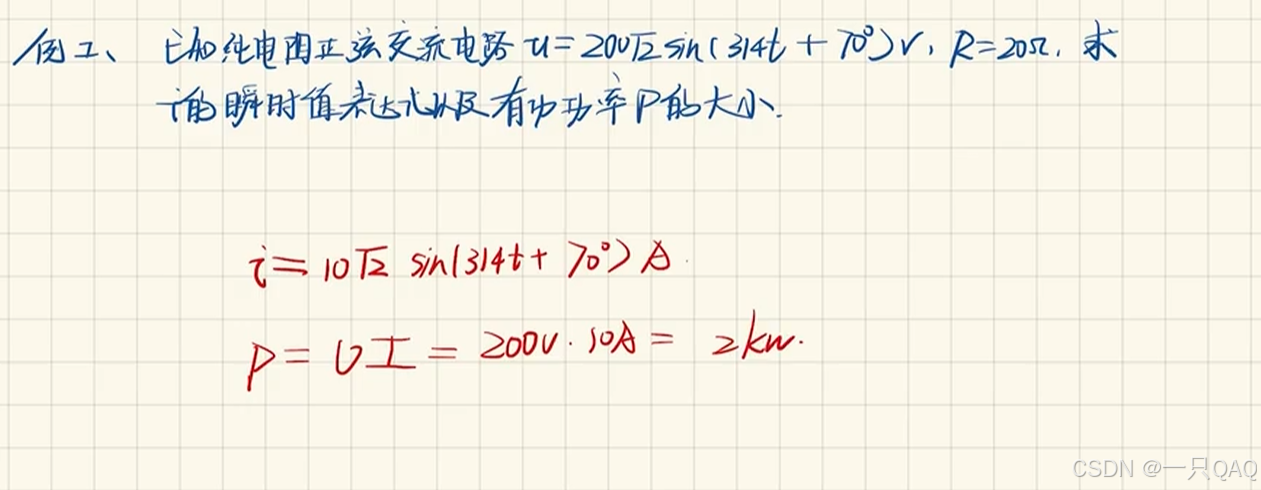 例1、 已知纯电阻正弦交流电路 u=200√2 sin(314t + 70°)V, R=20Ω, 求
i的瞬时值表达式以及有功功率P的大小.
i=10√2 sin(314t+70°)A
P=UI=200V·10A=2kw.
CSDN @一只QAQ